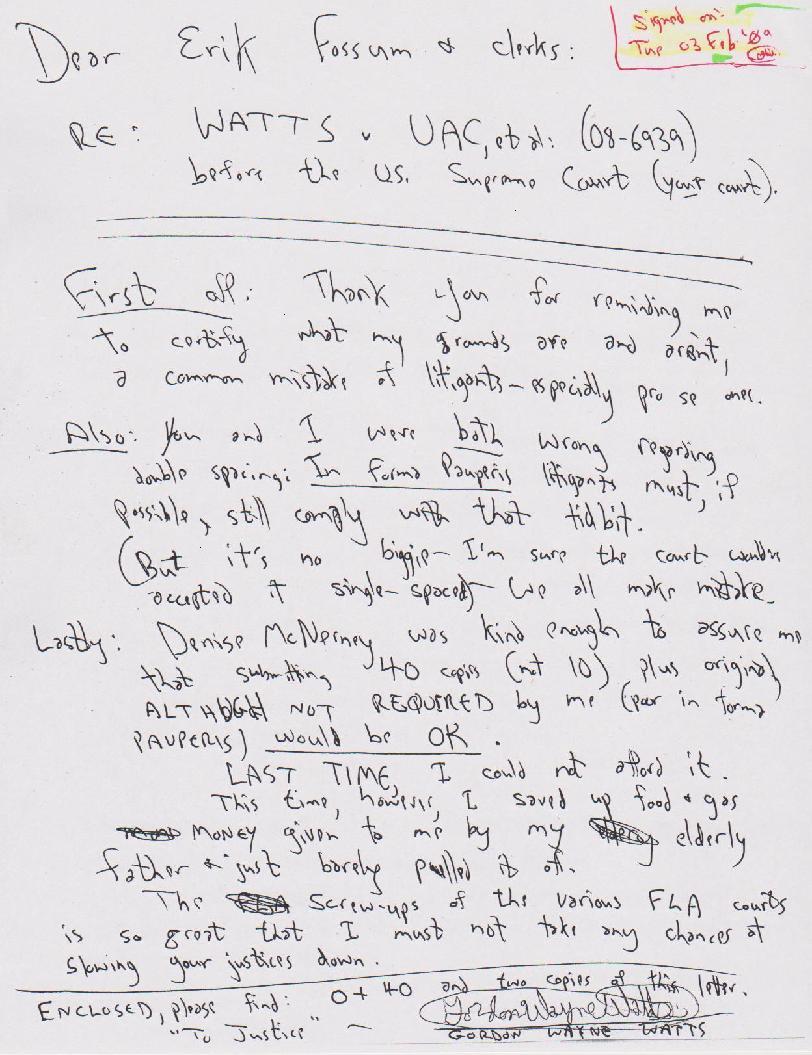 Signed on:
Tue 03 Feb '09
Dear Erik Fossum & clerks:
RE: WATTS v UAC, et al: (08-6939)
before the US. Supreme Court (your court).
First off: Thank you for reminding me
to certify what my grounds are and aren't,
a common mistake of litigants - especially pro se ones.
Also: You and I were both wrong regarding
double spacing: In Forma Pauperis litigants must, if
possible, still comply with that tidbit.
(But it's no biggie - I'm sure the court would've
accepted it single-spaced) - We all make mistake.
Lastly: Denise McNerney was kind enough to assure me
that submitting 40 copies (not 10) plus original,
ALTHOUGH NOT REQUIRED by me (poor in forma
PAUPERIS) would be OK.
LAST TIME, I could not afford it.
This time, however, I saved up food & gas
MONEY given to me by my elderly
father & just barely pulled it off.
The screw-ups of the various FLA courts
is so great that I must not take any chances at
slowing your justices down.
ENCLOSED, please find: O + 40 and two copies of this letter.
"To Justice" — Gordon Wayne Watts
GORDON WAYNE WATTS